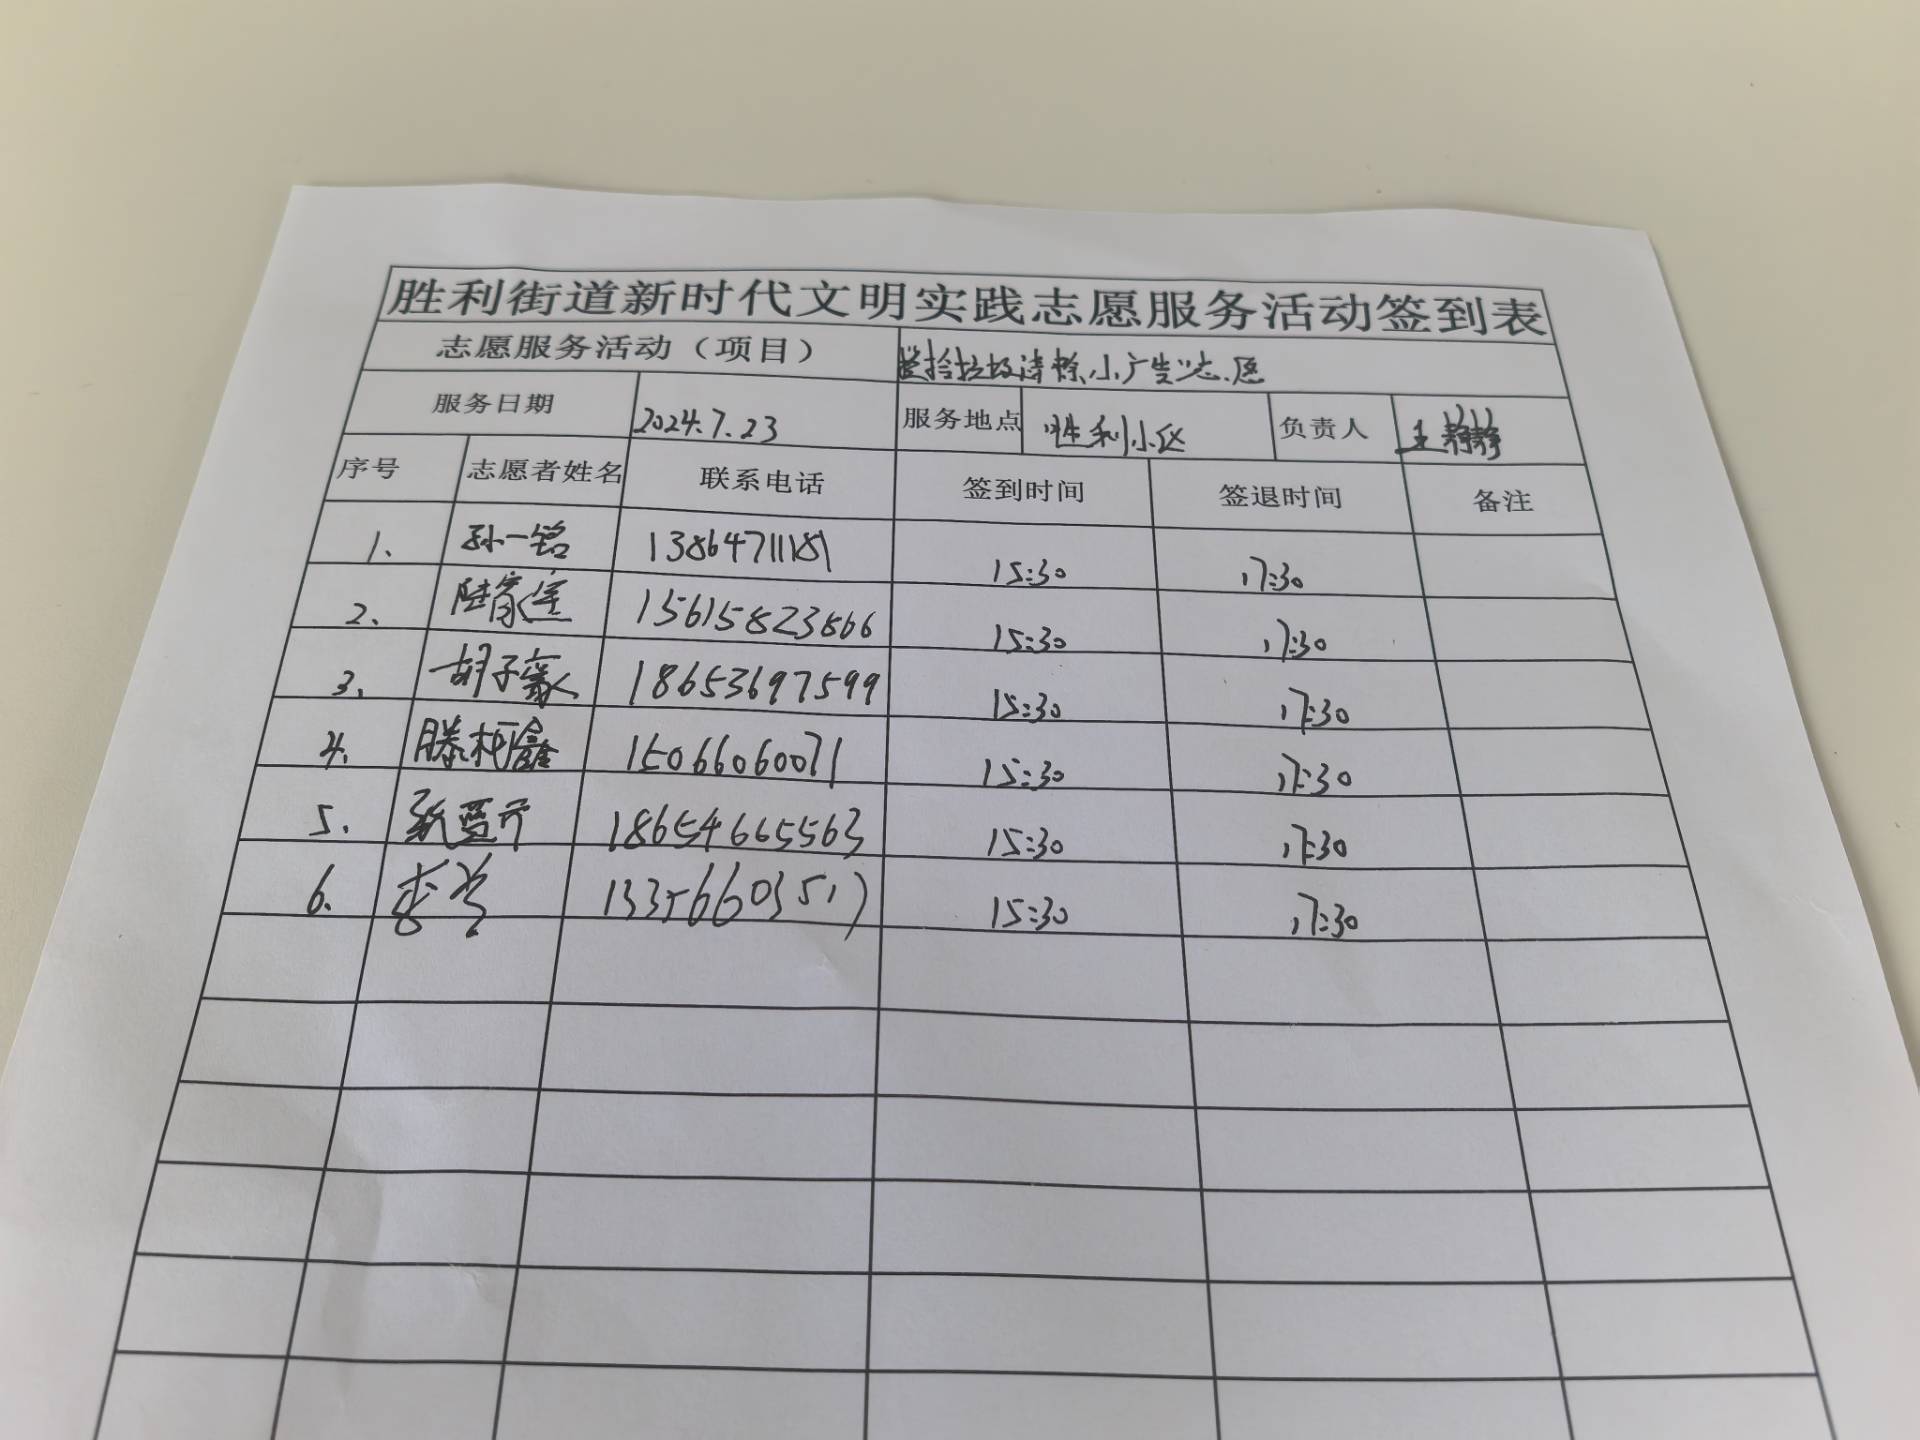 胜利街道新时代文明实践志愿服务活动签到表
志愿服务活动（项目） 捡拾垃圾清除小广告志愿
服务日期 2024.7.23 服务地点 胜利小区 负责人 王静静
序号 志愿者姓名 联系电话 签到时间 签退时间 备注
1. 孙一铭 13864711181 15:30 17:30
2. 陆家宝 15615823866 15:30 17:30
3. 胡子豪 18653697599 15:30 17:30
4. 滕柯鑫 15066060071 15:30 17:30
5. 15:30 17:30 18654665563
6. 15:30 17:30